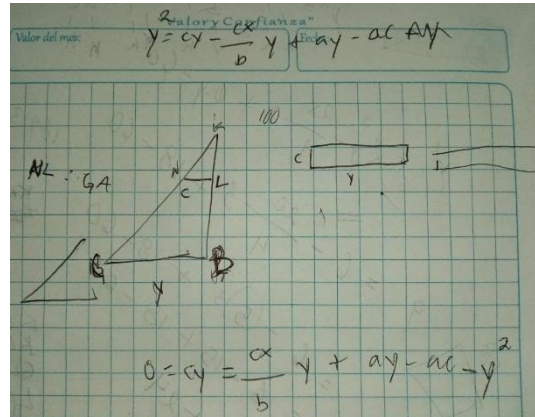 "Valor y Confianza"
Valor del mes:
Fec
y² = cy - cx/b y + ay - ac
100
K
NL : GA
N
L
C
G
B
y
C
y
0 = cy = cx/b y + ay - ac - y²